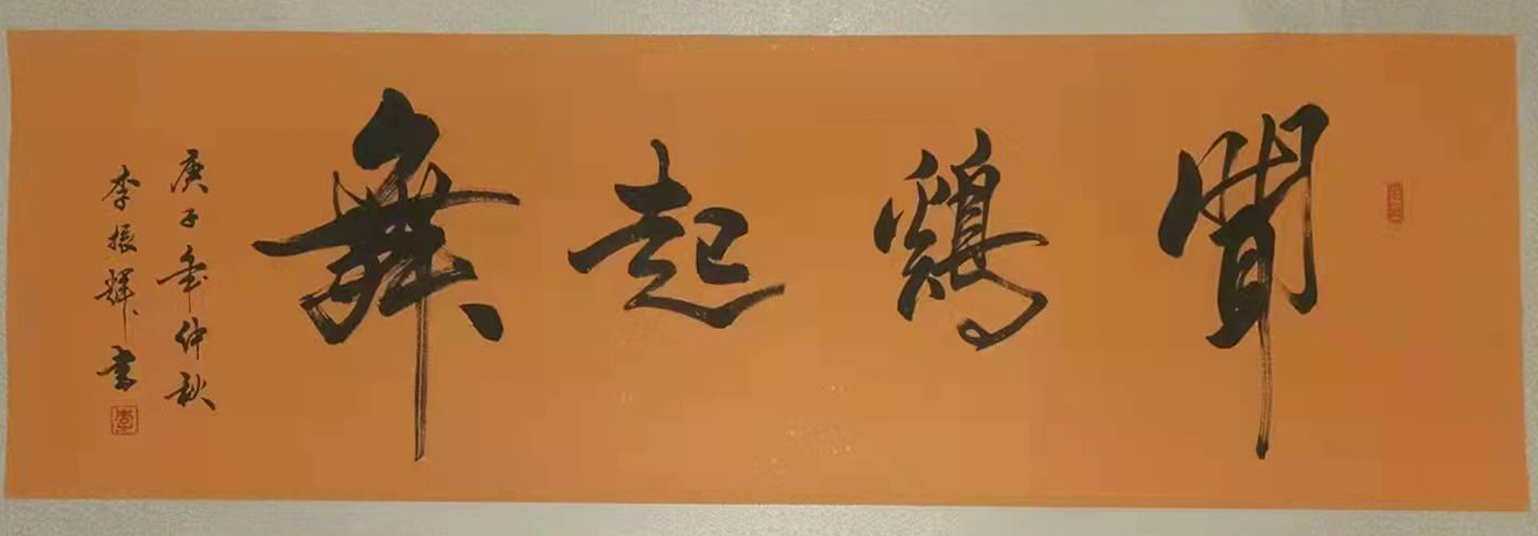 聞鷄起舞
庚子年仲秋
李振輝書